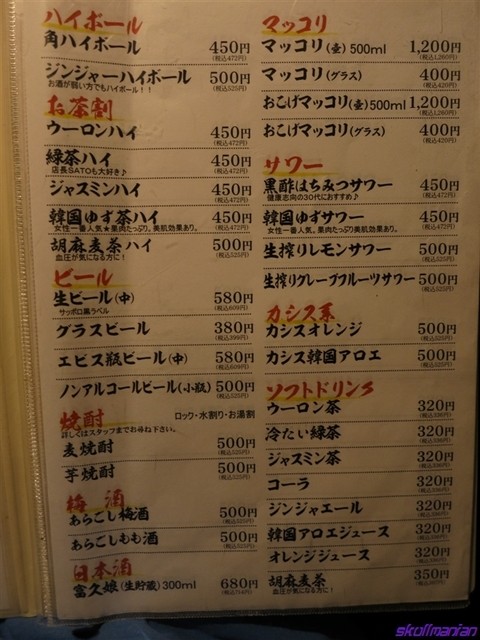 ハイボール
角ハイボール 450円
(税込472円)
ジンジャーハイボール 500円
お酒が弱い方でもハイボール!! (税込525円)
お茶割
ウーロンハイ 450円
(税込472円)
緑茶ハイ 450円
店長SATOも大好き♪ (税込472円)
ジャスミンハイ 450円
(税込472円)
韓国ゆず茶ハイ 450円
女性一番人気★果肉たっぷり。美肌効果あり。 (税込472円)
胡麻麦茶ハイ 500円
血圧が気になる方に! (税込525円)
ビール
生ビール(中) 580円
サッポロ黒ラベル (税込609円)
グラスビール 380円
(税込399円)
エビス瓶ビール(中) 580円
(税込609円)
ノンアルコールビール(小瓶) 500円
(税込525円)
焼酎 ロック・水割り・お湯割
詳しくはスタッフまでお尋ね下さい。
麦焼酎 500円
(税込525円)
芋焼酎 500円
(税込525円)
梅酒
あらごし梅酒 500円
(税込525円)
あらごしもも酒 500円
(税込525円)
日本酒
富久娘(生貯蔵)300ml 680円
(税込714円)
マッコリ
マッコリ(壷)500ml 1,200円
(税込1,260円)
マッコリ(グラス) 400円
(税込420円)
おこげマッコリ(壷)500ml 1,200円
(税込1,260円)
おこげマッコリ(グラス) 400円
(税込420円)
サワー
黒酢はちみつサワー 450円
健康志向の30代におすすめ♪ (税込472円)
韓国ゆずサワー 450円
女性一番人気。果肉たっぷり。美肌効果あり。 (税込472円)
生搾りレモンサワー 500円
(税込525円)
生搾りグレープフルーツサワー 500円
(税込525円)
カシス系
カシスオレンジ 500円
(税込525円)
カシス韓国アロエ 500円
(税込525円)
ソフトドリンク
ウーロン茶 320円
(税込336円)
冷たい緑茶 320円
(税込336円)
ジャスミン茶 320円
(税込336円)
コーラ 320円
(税込336円)
ジンジャエール 320円
(税込336円)
韓国アロエジュース 320円
(税込336円)
オレンジジュース 320円
(税込336円)
胡麻麦茶 350円
血圧が気になる方に!
skullmanian